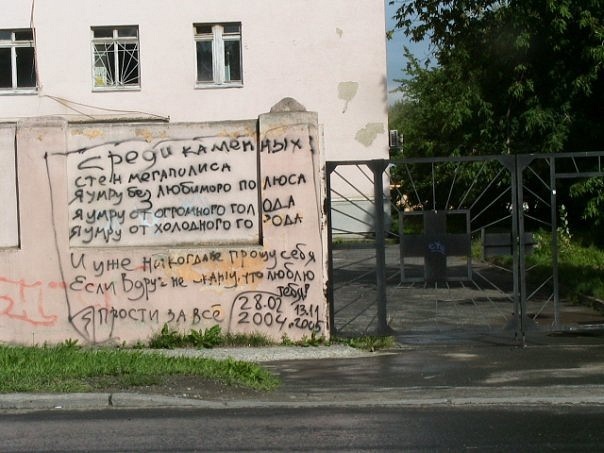 Среди каменных
стен мегаполиса
Я умру без любиморо полюса
Я умру от огромного голода
Я умру от холодного города
И уже никогда не прощу себя
Если вдруг не скажу, что люблю
тебя!
Прости за всё
28.02 13.11
2004. 2005